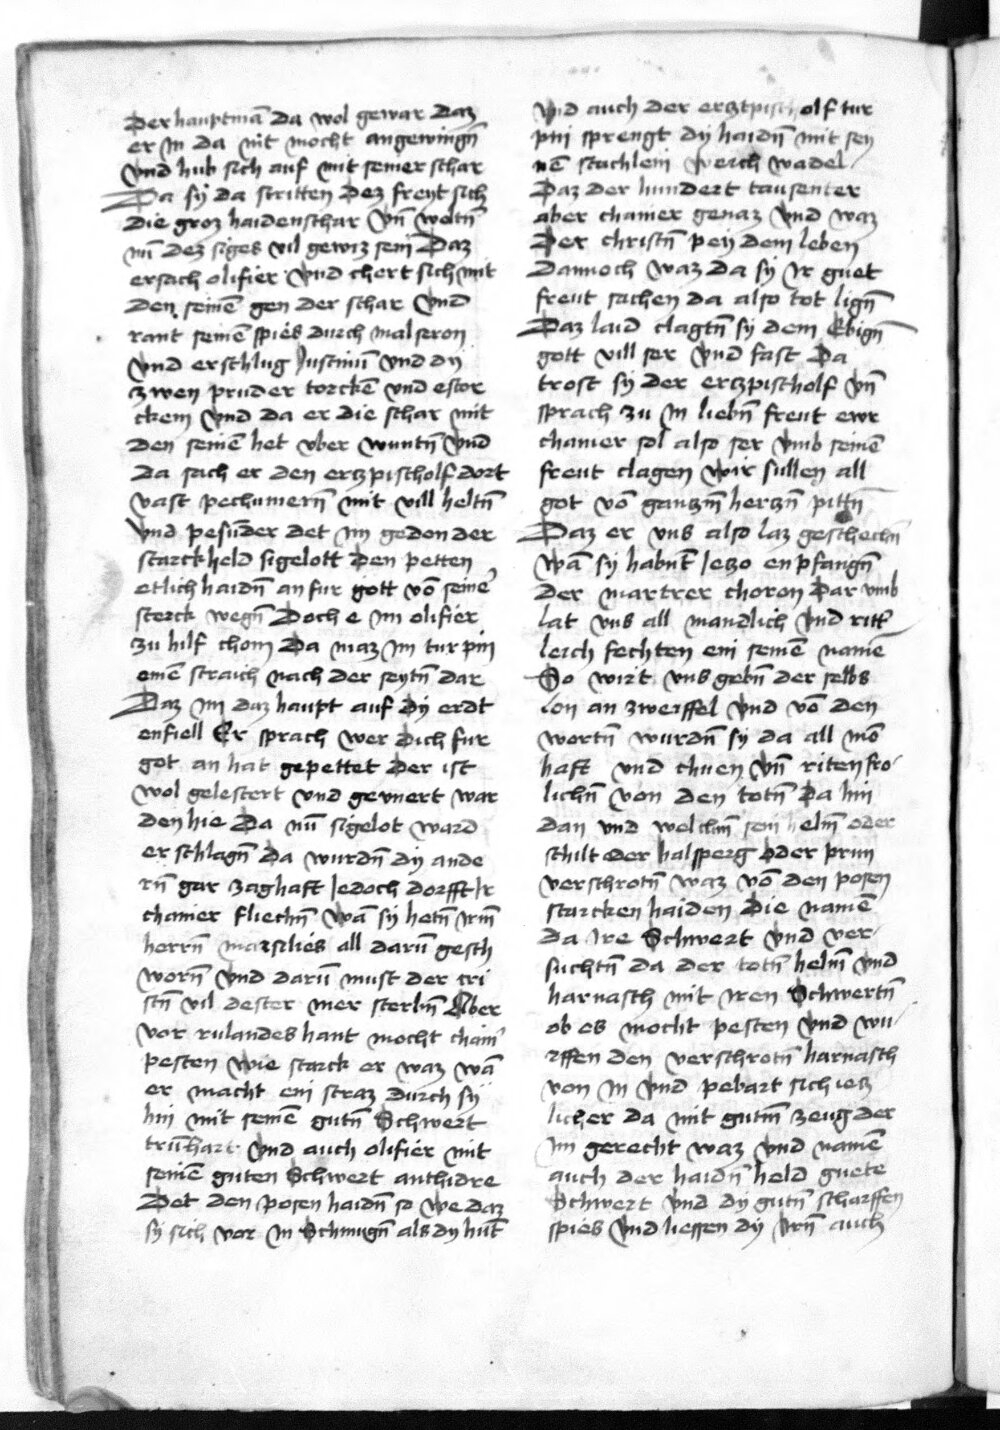 Der hauptmā da wol gewar daz
er in da nit mocht angewingn̄
vnd hub sich auf mit seiner schar
Da sÿ da stritten dez frewt sich
die groz haidenschar vn̄ woltn̄
nu᷈ dez siges vil gewiz sein Daz
ersach olifier vnd chert sich mit
den seinē gen der schar vnd
rant seinen spies durch malseron
vnd erschlug Justinū vnd dÿ
zwen pruder torckē vnd estor
ckem vnd da er die schar mit
den seinē het vber wuntn̄ vnd
da sach er den ertzpischolf dort
vast pechumern̄ mit vill heltn̄
vnd pesūder det im gedon der
starck held sigelott den petten
etlich haidn̄ an fur gott vō seiner
sterck wegn̄ Doch e im olifier
zu hilf chom Da maz im turpin
einē straich nach der seytn̄ dar
Daz im daz haupt auf dÿ erdt
enfiell Er sprach wer dich fur
got an hat gepettet der ist
wol gelestert vnd gevnert war
den hie Da nū sigelot ward
erschlagn̄ da wurdn̄ dÿ ande
rn̄ gar zaghaft Jedoch dorfft Jr
chainer fliechn̄ wā sÿ hetn̄ irm̄
herrn̄ marsilies all darū gesch
worn̄ vnd darū must der cri
stn̄ vil dester mer sterbn̄ Aber
vor rulandes hant mocht chain̄
pesten wie starck er waz wā
er macht ein straz durch sÿ
hin mit seinē gutn̄ Schwert
trūhart vnd auch olifier mit
seinē guten Schwert anthidre
Det den posen haidn̄ so we daz
sÿ sich vor in Schmugn̄ als dÿ hūt
vnd auch der ertzpischolf tur
pin sprengt dÿ haidn̄ mit sey
nē stachlein weich wadel
Daz der hundert tausenter
aber chainer genaz vnd waz
Der christn̄ peÿ dem leben
dannoch waz da sÿ ir guet
freut sachen da also tot lign̄
Daz laid clagtn̄ sÿ dem Ebign̄
gott vill ser vnd fast Da
trost sÿ der ertzpischolf vn̄
sprach zu in liebn̄ freut ewr
chainer sol also ser vmb seinē
freut clagen wir sullen all
got vō gantzm̄ hertzn̄ pittn̄
Daz er vns also laz geschechn̄
wā sÿ habnt Jetzo enpfangn̄
der martrer choron Dar vmb
lat vns all mandlich vnd ritt̄
leich fechten ein seinē namē
So wirt vns gebn̄ der selbs
lon an zweiffel vnd vō den
wortn̄ wurdn̄ sÿ da all mō
haft vnd chuen vn̄ riten fro
lichn̄ von den totn̄ da hin
dan vnd welchm̄ sein helm̄ oder
schilt oder halsperg oder prun
verschrotn̄ waz vō den posen
starcken haiden die namē
da ire Schwert vnd ver
suchtn̄ da der totn̄ helm̄ vnd
harnasch mit iren Schwertn̄
ob es mocht pesten vnd wu
rffen den verschrotn̄ harnasch
von in vnd pebart sich ietz
licher da mit gutm̄ zeug der
im gerecht waz vnd namē
auch der haidn̄ held guete
Schwert vnd dÿ gutn̄ scharffen
spies vnd liessen dÿ irn̄ auch